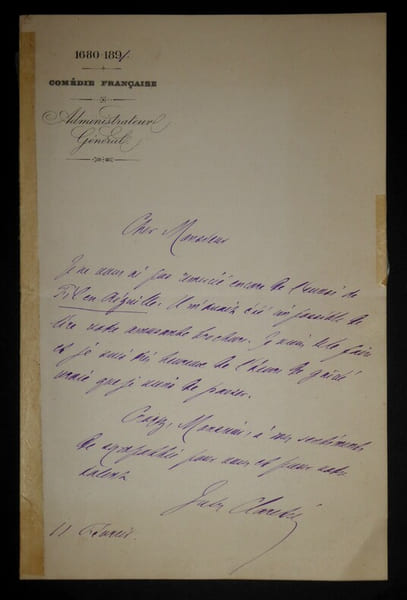 1680-189
COMÉDIE FRANÇAISE
Administrateur
Général
Cher Monsieur
Je ne vous ai pas remercié encore de l'envoi de
Fil en Aiguille. Il m'avait été impossible de
lire votre amusante brochure. Je viens de le faire
et je suis heureux de l'heure de gaieté
vraie que je viens de passer.
Croyez, Monsieur, à mes sentiments
de sympathie pour vous et pour votre
talent
Jules Claretie
11 Février.